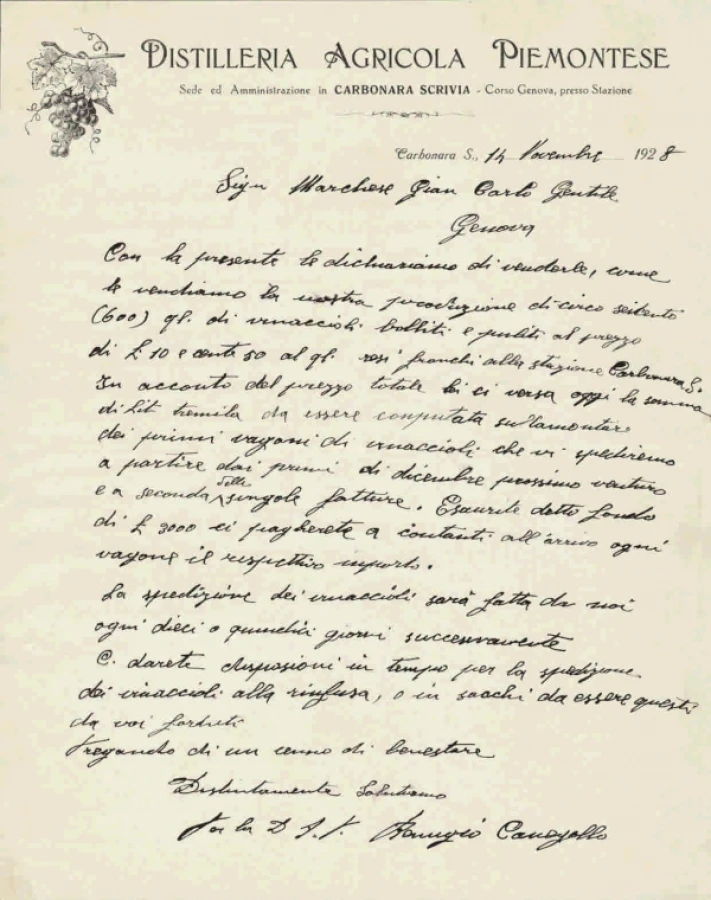 DISTILLERIA AGRICOLA PIEMONTESE
Sede ed Amministrazione in CARBONARA SCRIVIA - Corso Genova, presso Stazione
Carbonara S., 14 Novembre 1928
Sign Marchese Gian Carlo Gentile
Genova
Con la presente le dichiariamo di venderle, come
le vendiamo la nostra produzione di circa seicento
(600) ql. di vinaccioli bolliti e puliti al prezzo
di £ 10 e cent 50 al ql. resi franchi alla stazione Carbonara S.
In acconto del prezzo totale lei ci versa oggi la somma
di Lit tremila da essere computata sull'amontare
dei primi vagoni di vinaccioli che vi spediremo
a partire dai primi di dicembre prossimo venturo
e a seconda delle singole fatture. Esaurite detto fondo
di £ 3000 ci pagherete a contanti all'arrivo ogni
vagone il respettivo importo.
La spedizione dei vinaccioli sarà fatta da noi
ogni dieci o quindici giorni successivamente
C. darete disposioni in tempo per la spedizione
dei vinaccioli alla rinfusa, o in sacchi da essere questi
da voi forniti
Pregando di un cenno di benestare
Distintamente Salutiamo
Per la D A P Canegallo